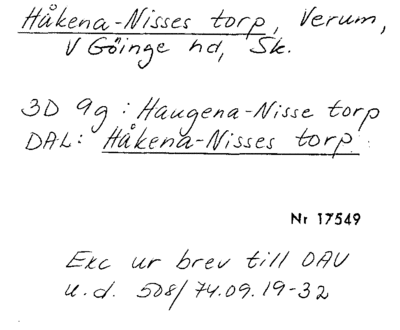 Håkena-Nisses torp, Verum,
V Göinge hd, Sk.
3D 9g: Haugena-Nisse torp
DAL: Håkena-Nisses torp.
Nr 17549
Exc ur brev till OAU
u.d. 508/74.09.19-32